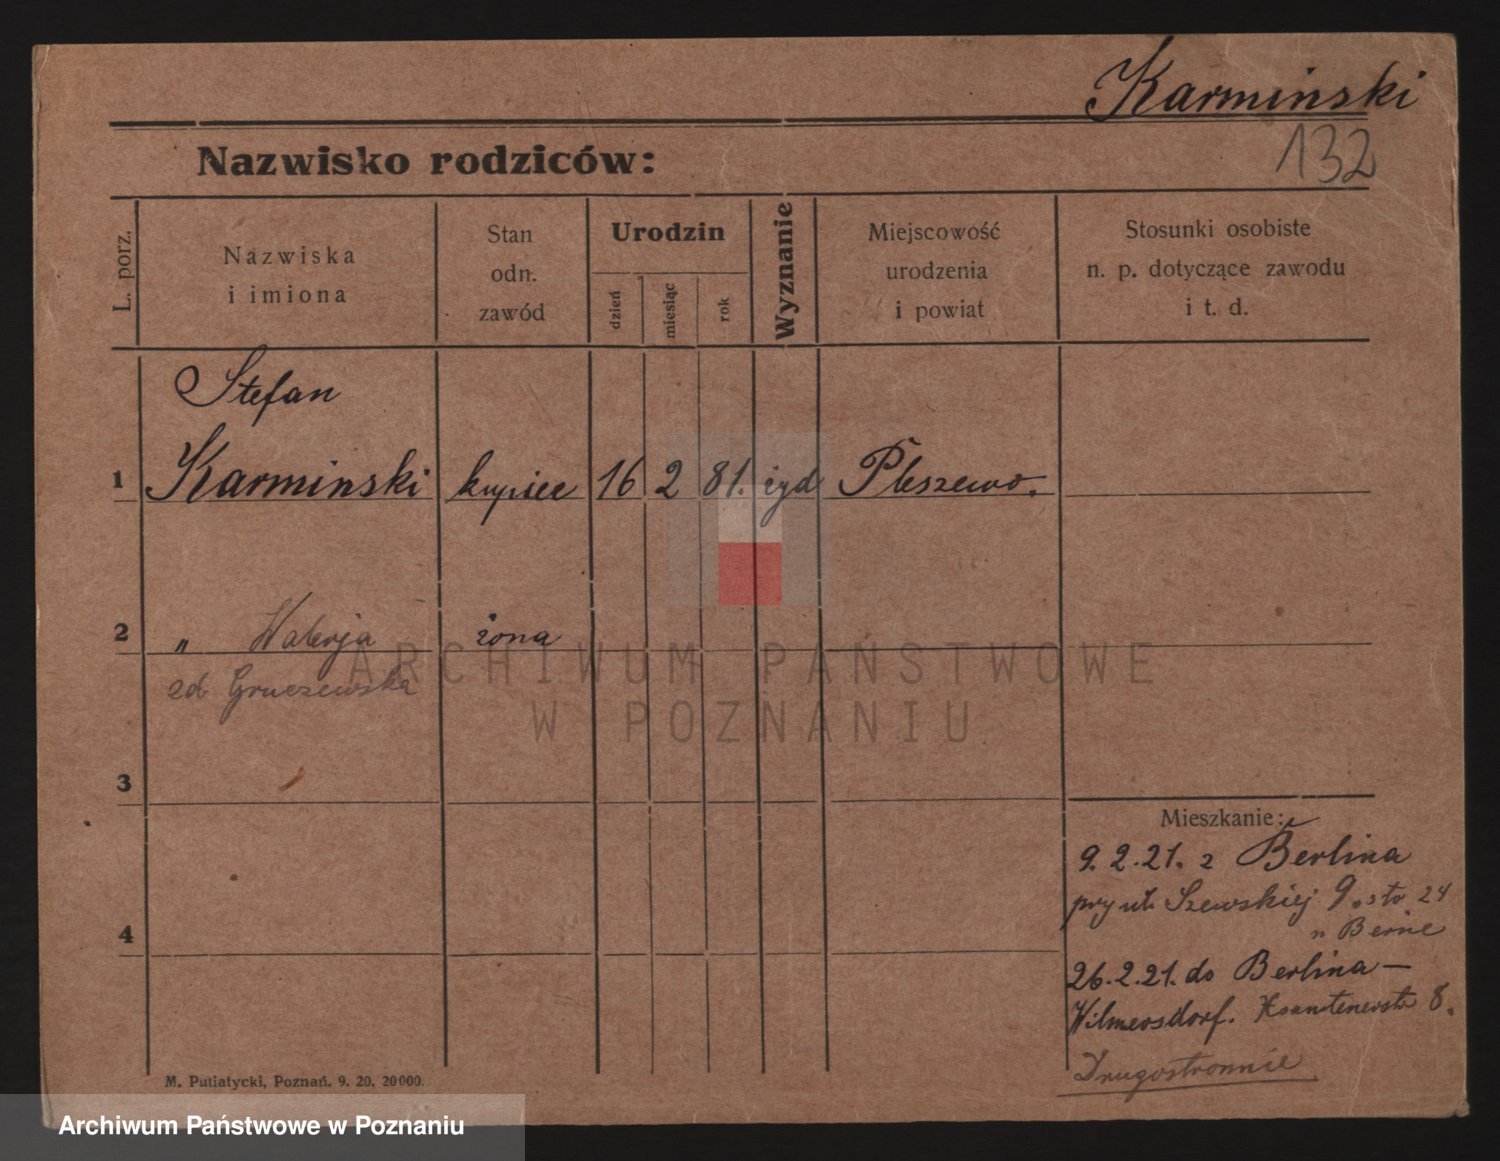 Karmiński
132
Nazwisko rodziców:
L. porz.
Nazwiska
i imiona
Stan
odn.
zawód
Urodzin
dzień
miesiąc
rok
Wyznanie
Miejscowość
urodzenia
i powiat
Stosunki osobiste
n. p. dotyczące zawodu
i t. d.
Stefan
1 Karminski kupiec 16 2 81. żyd Pleszewo.
2 " Walerja żona
zd Gruczewska
3
4
Mieszkanie:
9.2.21. z Berlina
przy ul. Szewskiej 9. sto 24
n Berne
26.2.21. do Berlina —
Wilmersdorf. Xsantenerstr 8.
Drugostronnie
M. Putiatycki, Poznań. 9. 20. 20000.
ARCHIWUM PAŃSTWOWE
W POZNANIU
Archiwum Państwowe w Poznaniu